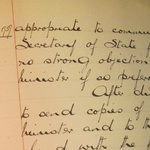 appropriate to commun
Secretary of State f
no strong objection
minister if so prefer
After di
to send copies of
minister and to th
with the